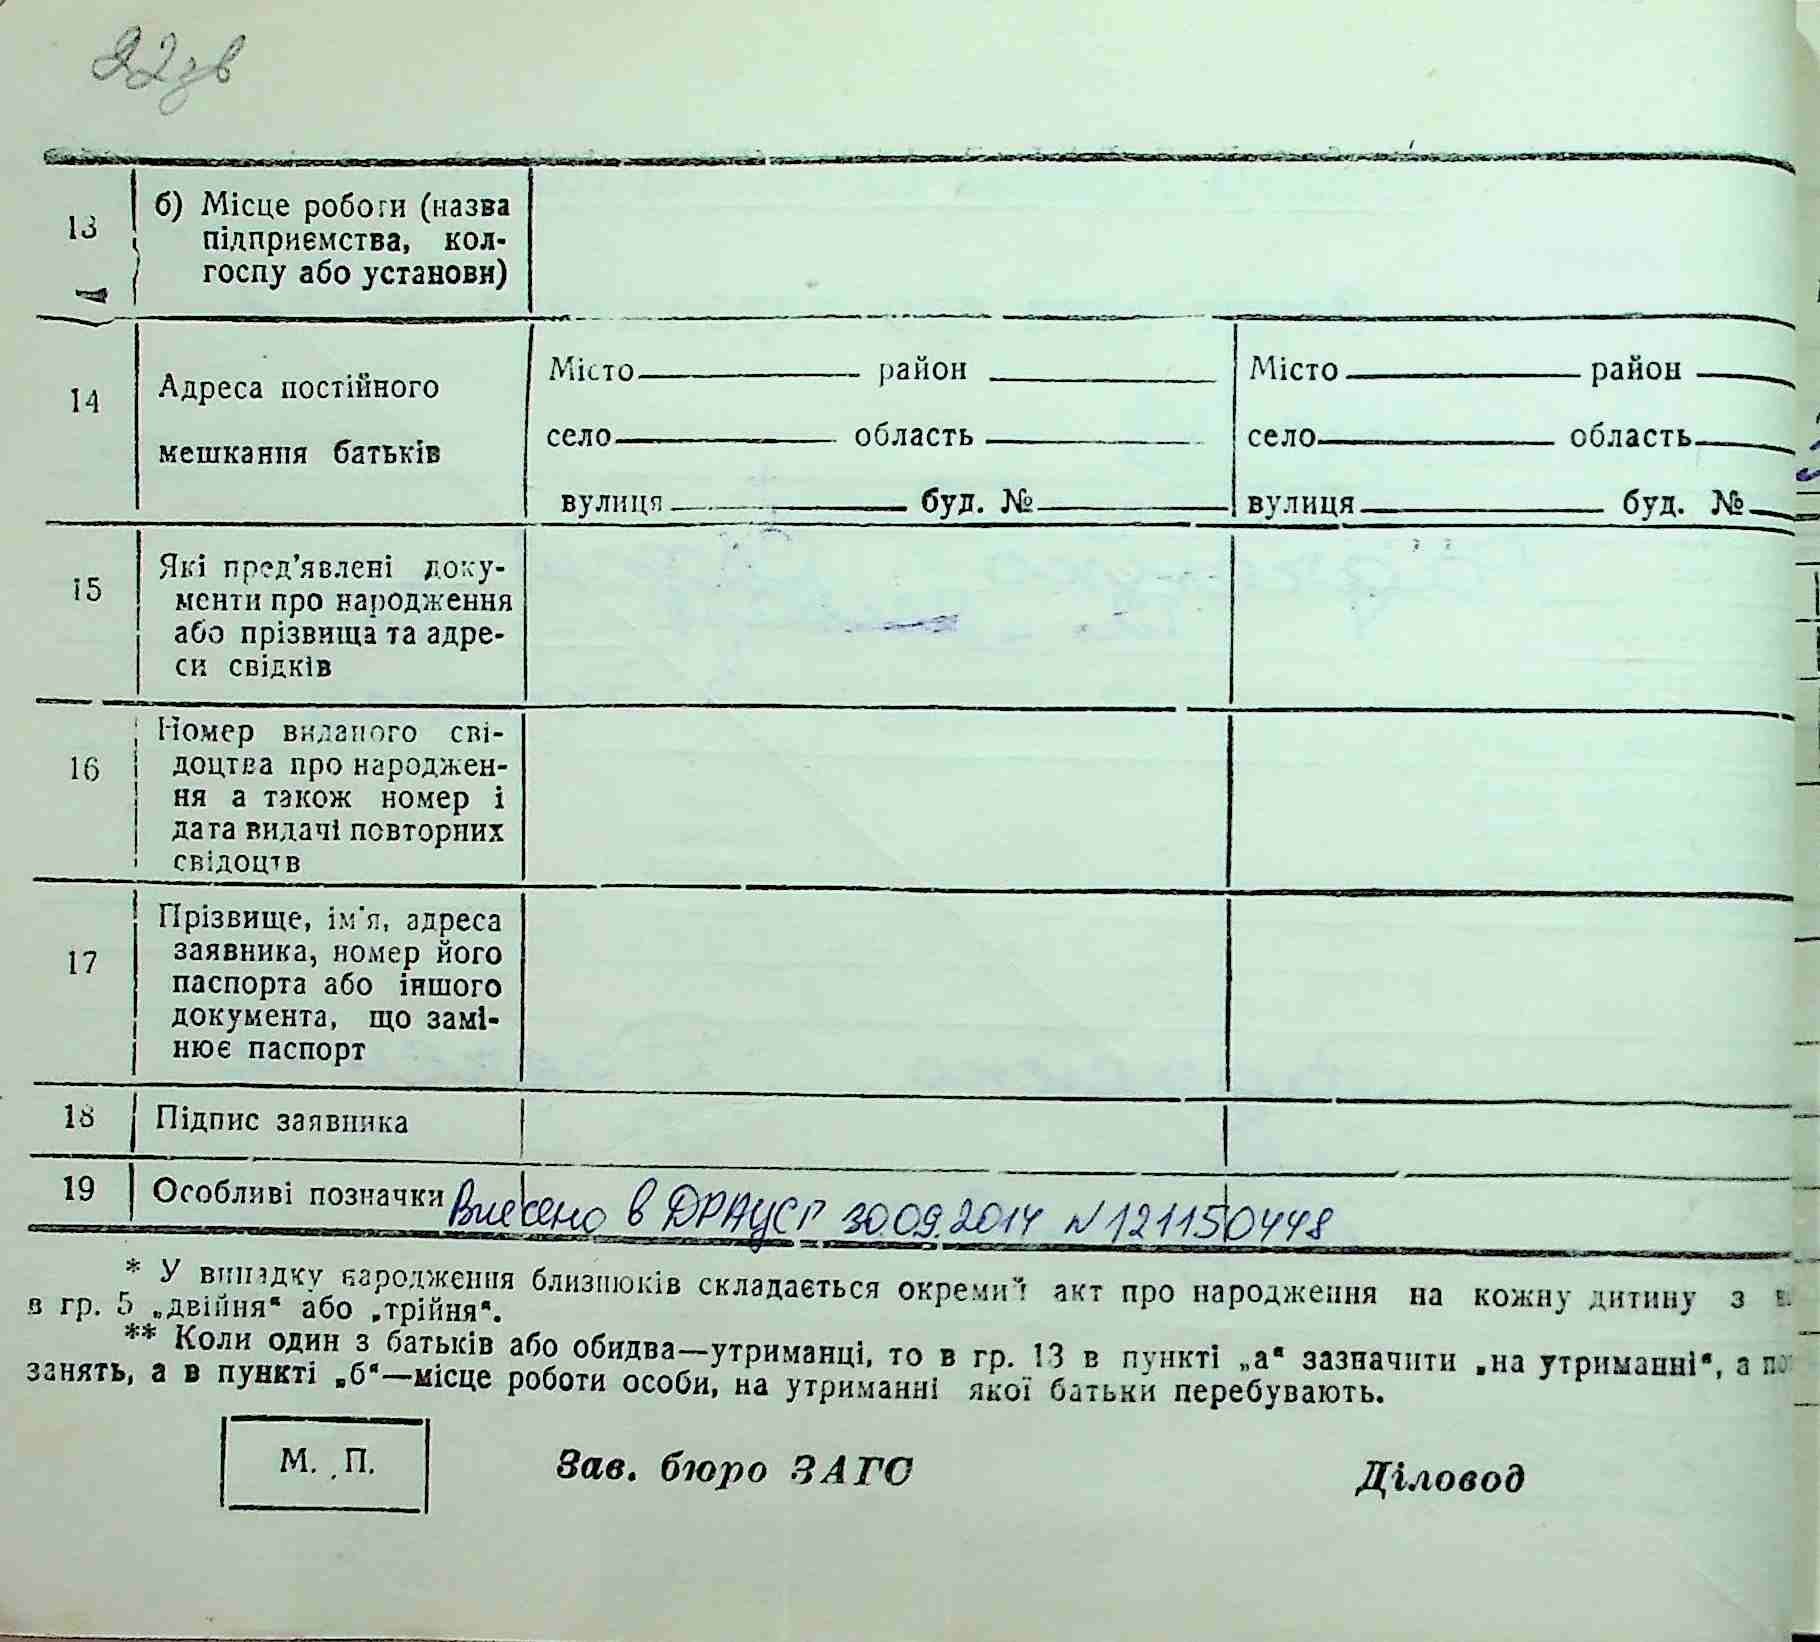 22 зв
13
б) Місце роботи (назва
підприємства, кол-
госпу або установи)
14
Адреса постійного
мешкання батьків
Місто район
село область
вулиця буд. №
Місто район
село область
вулиця буд. №
15
Які пред'явлені доку-
менти про народження
або прізвища та адре-
си свідків
16
Номер виданого сві-
доцтва про народжен-
ня а також номер і
дата видачі повторних
свідоцтв
17
Прізвище, ім'я, адреса
заявника, номер його
паспорта або іншого
документа, що замі-
нює паспорт
18
Підпис заявника
19
Особливі позначки Внесено в ДРАЦСГ 30.09.2014 N121150448
* У випадку народження близнюків складається окремий акт про народження на кожну дитину з
в гр. 5 „двійня“ або „трійня“.
** Коли один з батьків або обидва—утриманці, то в гр. 13 в пункті „а“ зазначити „на утриманні“, а
занять, а в пункті „б“—місце роботи особи, на утриманні якої батьки перебувають.
М. П.
Зав. бюро ЗАГС
Діловод